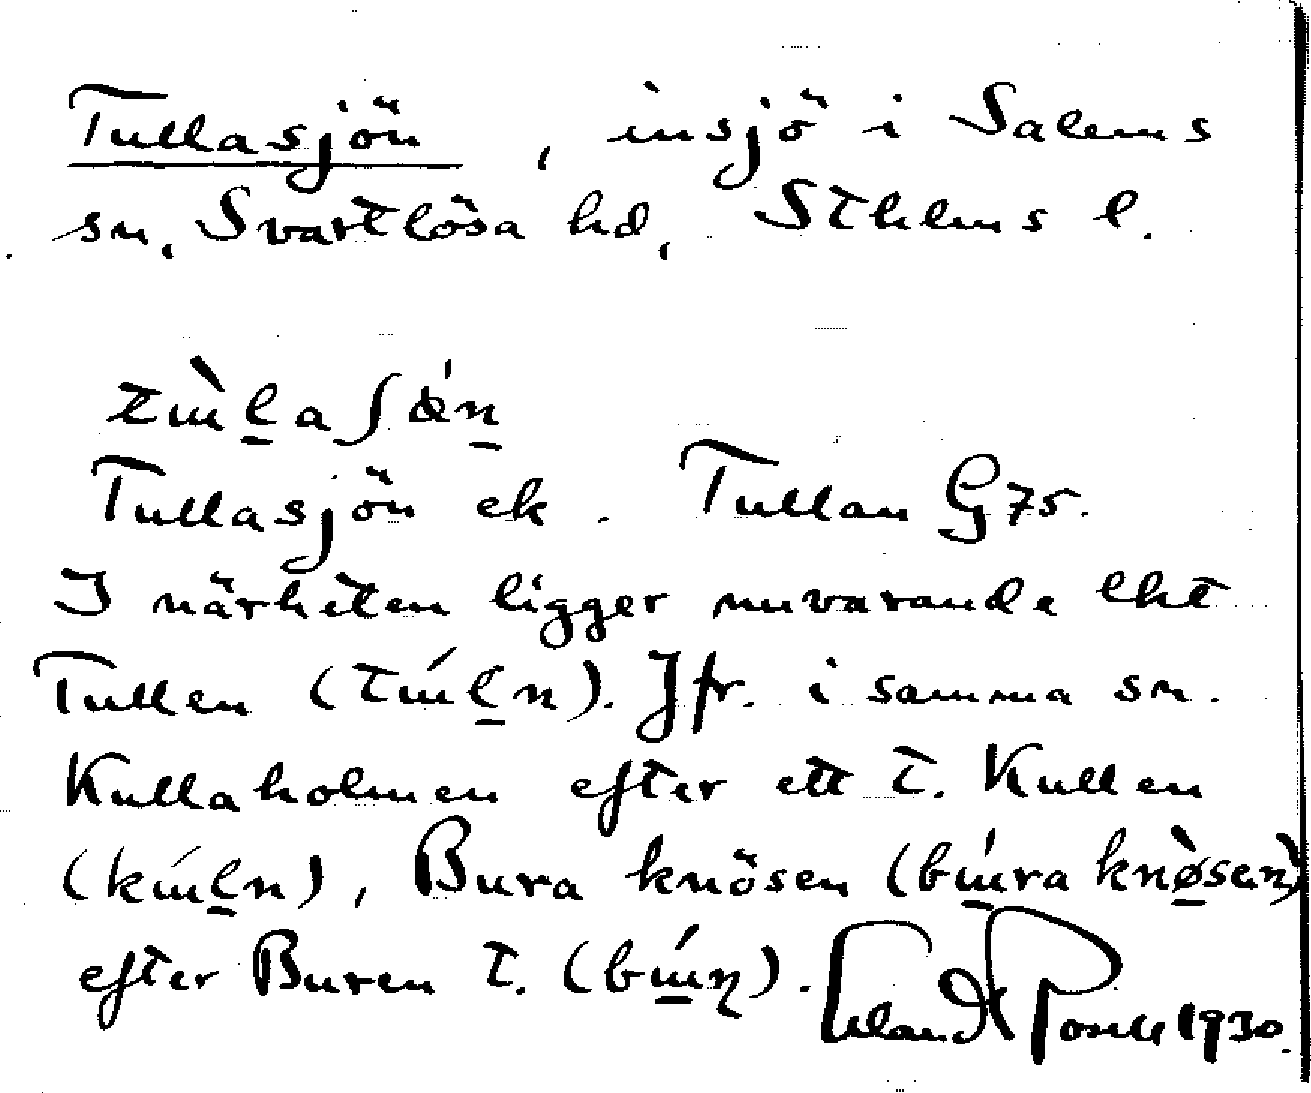 Tullasjön, insjö i Salems
sn, Svartlösa hd, Sthlms l.
tùl̲aʃǿn̲
Tullasjön ek. Tullan G 75.
I närheten ligger nuvarande lht
Tullen (túl̲n). Jfr. i samma sn.
Kullaholmen efter ett t. Kullen
(kúl̲n), Bura knösen (bú̲ra knø̲̀sen)
efter Buren t. (bú̲ɳ). Erland Rosell 1930.